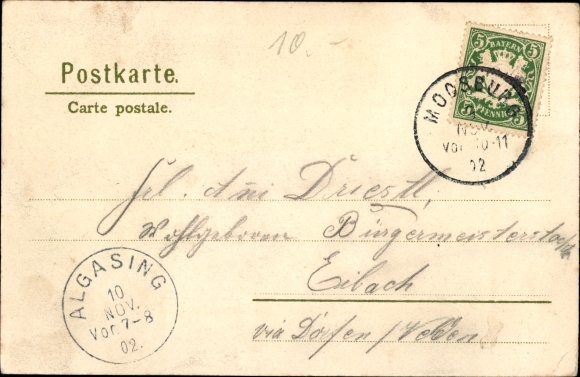 10.-
Postkarte.
Carte postale.
5 BAYERN 5
5 PFENNIG 5
MOOSBURG
9
NOV.
Vor. 10-11
02
Frl. Ani Driestl,
Wohlgeboren Bürgermeisterstoch
Eibach
via Dorfen / Velden
ALGASING
10
NOV.
Vor. 7-8
02.